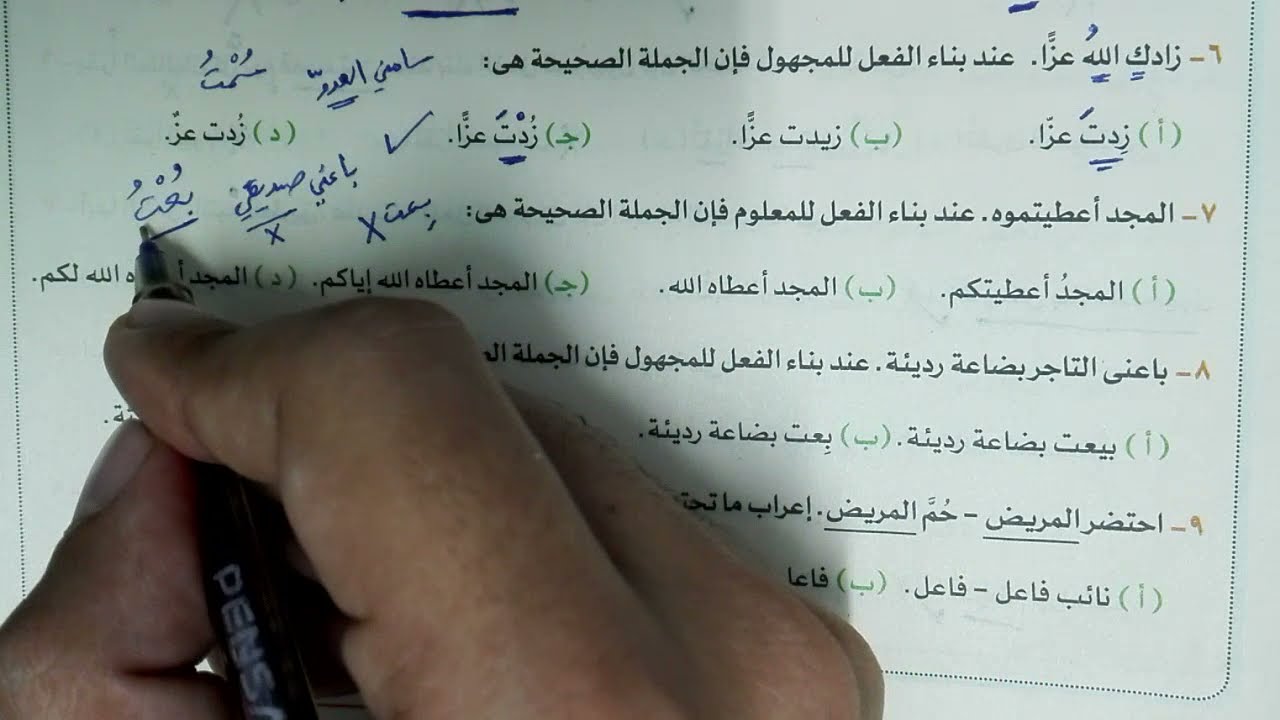 ٦- زادكِ اللهُ عزًّا. عند بناء الفعل للمجهول فإن الجملة الصحيحة هى: سامني العدوّ سُمْتُ
(أ) زِدتَ عزّا. (ب) زيدت عزًّا. (جـ) زُدْتَ عزًّا. ✓ (د) زُدت عزٌ.
باعني صديقي X بُعْتُ بِعت X
٧- المجد أعطيتموه. عند بناء الفعل للمعلوم فإن الجملة الصحيحة هى:
(أ) المجدُ أعطيتكم. (ب) المجد أعطاه الله. (جـ) المجد أعطاه الله إياكم. (د) المجد الله لكم.
٨- باعنى التاجر بضاعة رديئة. عند بناء الفعل للمجهول فإن الجملة
(أ) بيعت بضاعة رديئة. (ب) بِعت بضاعة رديئة.
٩- احتضر المريض - حُمَّ المريض. إعراب ما
(أ) نائب فاعل - فاعل. (ب)
PENSA